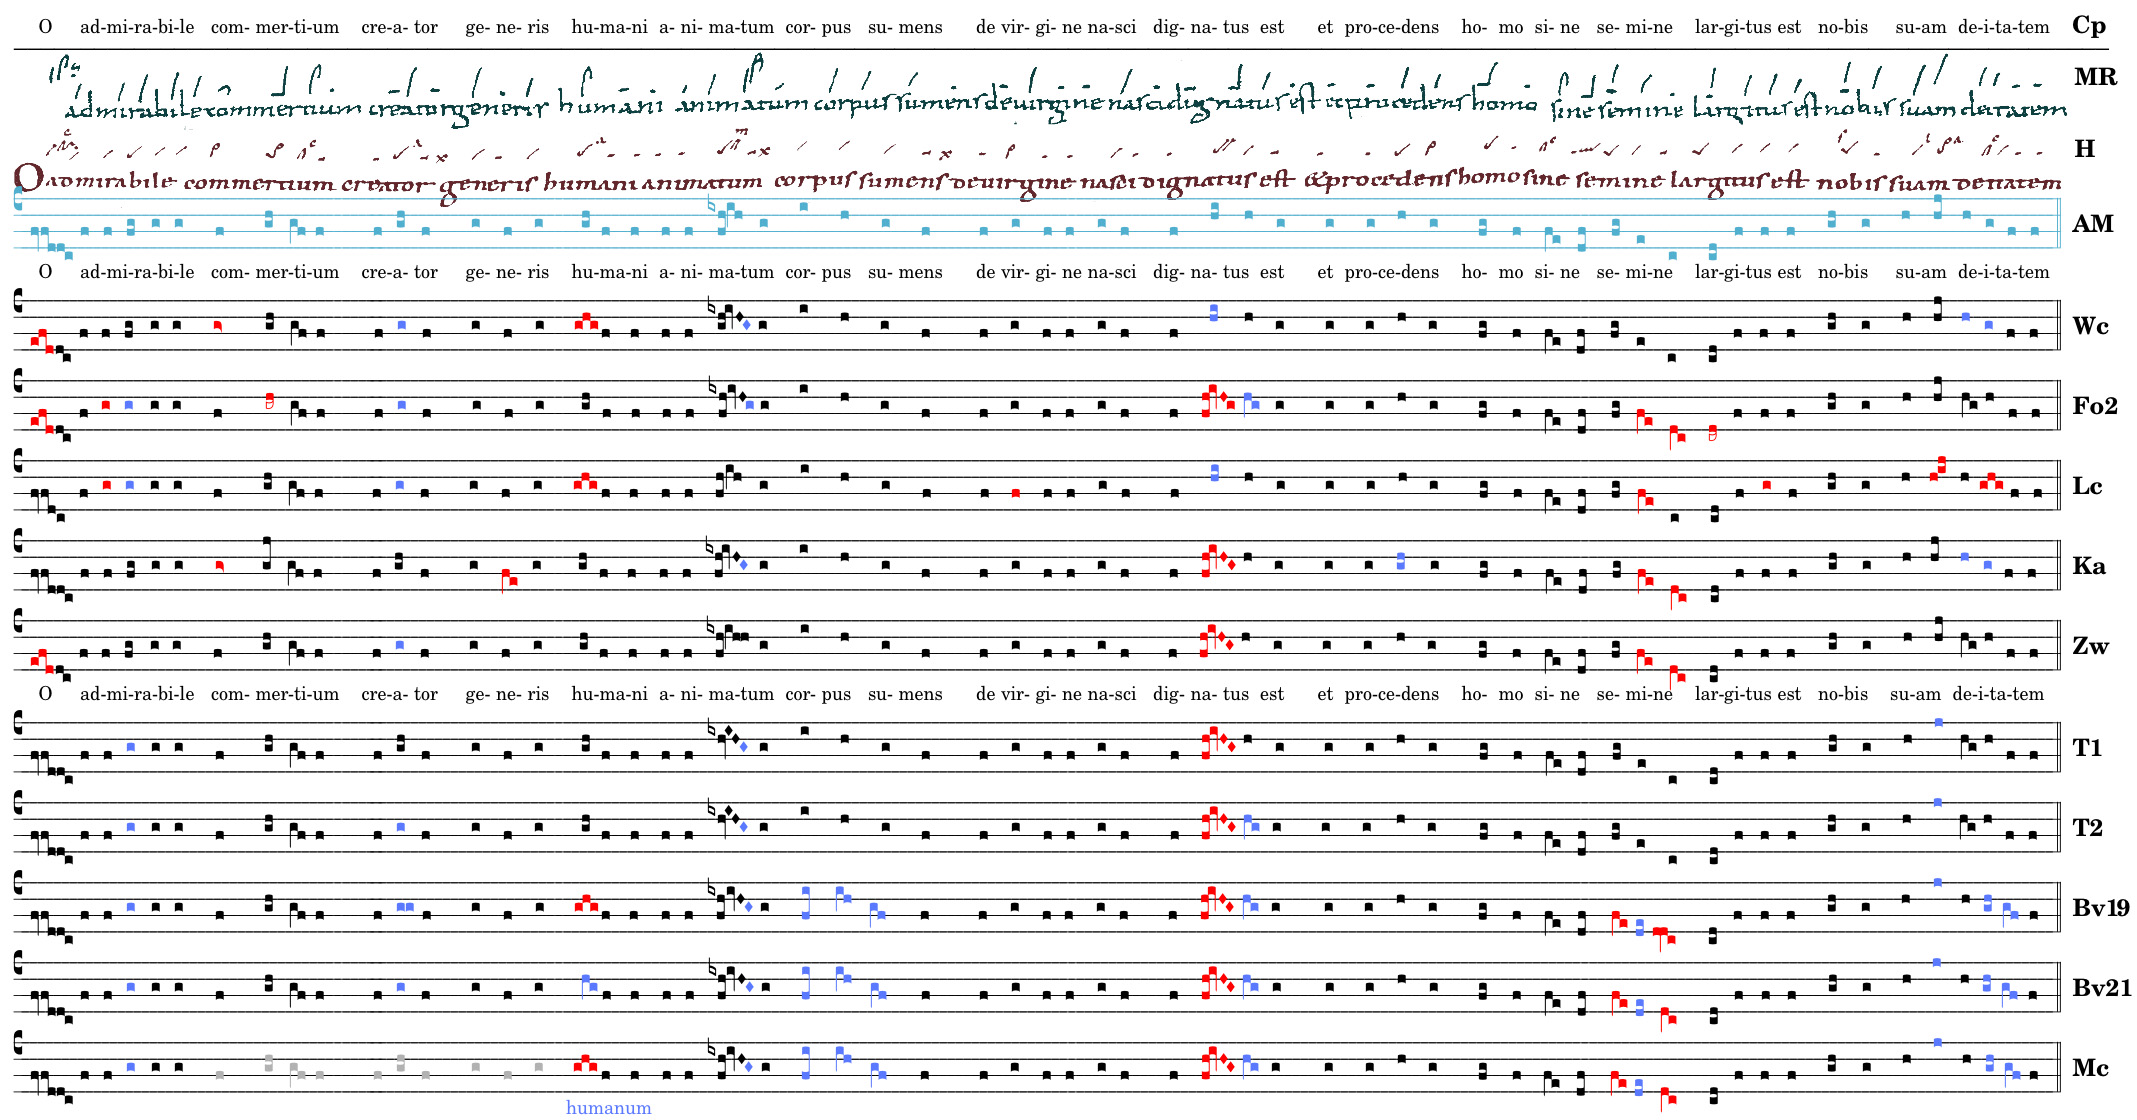 O ad-mi-ra-bi-le com- mer-ti-um cre-a- tor ge- ne- ris hu-ma-ni a- ni- ma-tum cor- pus su- mens de vir- gi- ne na-sci dig- na- tus est et pro-ce-dens ho- mo si- ne se- mi-ne lar-gi-tus est no-bis su-am de-i-ta-tem Cp
admirabile commertium creator generis humani animatum corpus sumens de uirgine nasci dignatus est et procedens homo sine semine largitus est nobis suam deitatem MR
O admirabile commertium creator generis humani animatum corpus sumens de uirgine nasci dignatus est & procedens homo sine semine largitus est nobis suam deitatem H
AM
O ad-mi-ra-bi-le com- mer-ti-um cre-a- tor ge- ne- ris hu-ma-ni a- ni- ma-tum cor- pus su- mens de vir- gi- ne na-sci dig- na- tus est et pro-ce-dens ho- mo si- ne se- mi-ne lar-gi-tus est no-bis su-am de-i-ta-tem
Wc
Fo2
Lc
Ka
Zw
O ad-mi-ra-bi-le com- mer-ti-um cre-a- tor ge- ne- ris hu-ma-ni a- ni- ma-tum cor- pus su- mens de vir- gi- ne na-sci dig- na- tus est et pro-ce-dens ho- mo si- ne se- mi-ne lar-gi-tus est no-bis su-am de-i-ta-tem
T1
T2
Bv19
Bv21
Mc
humanum